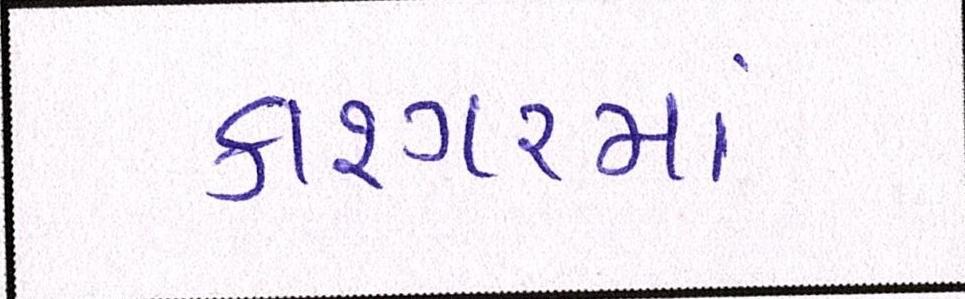 કાશ્ગરમાં